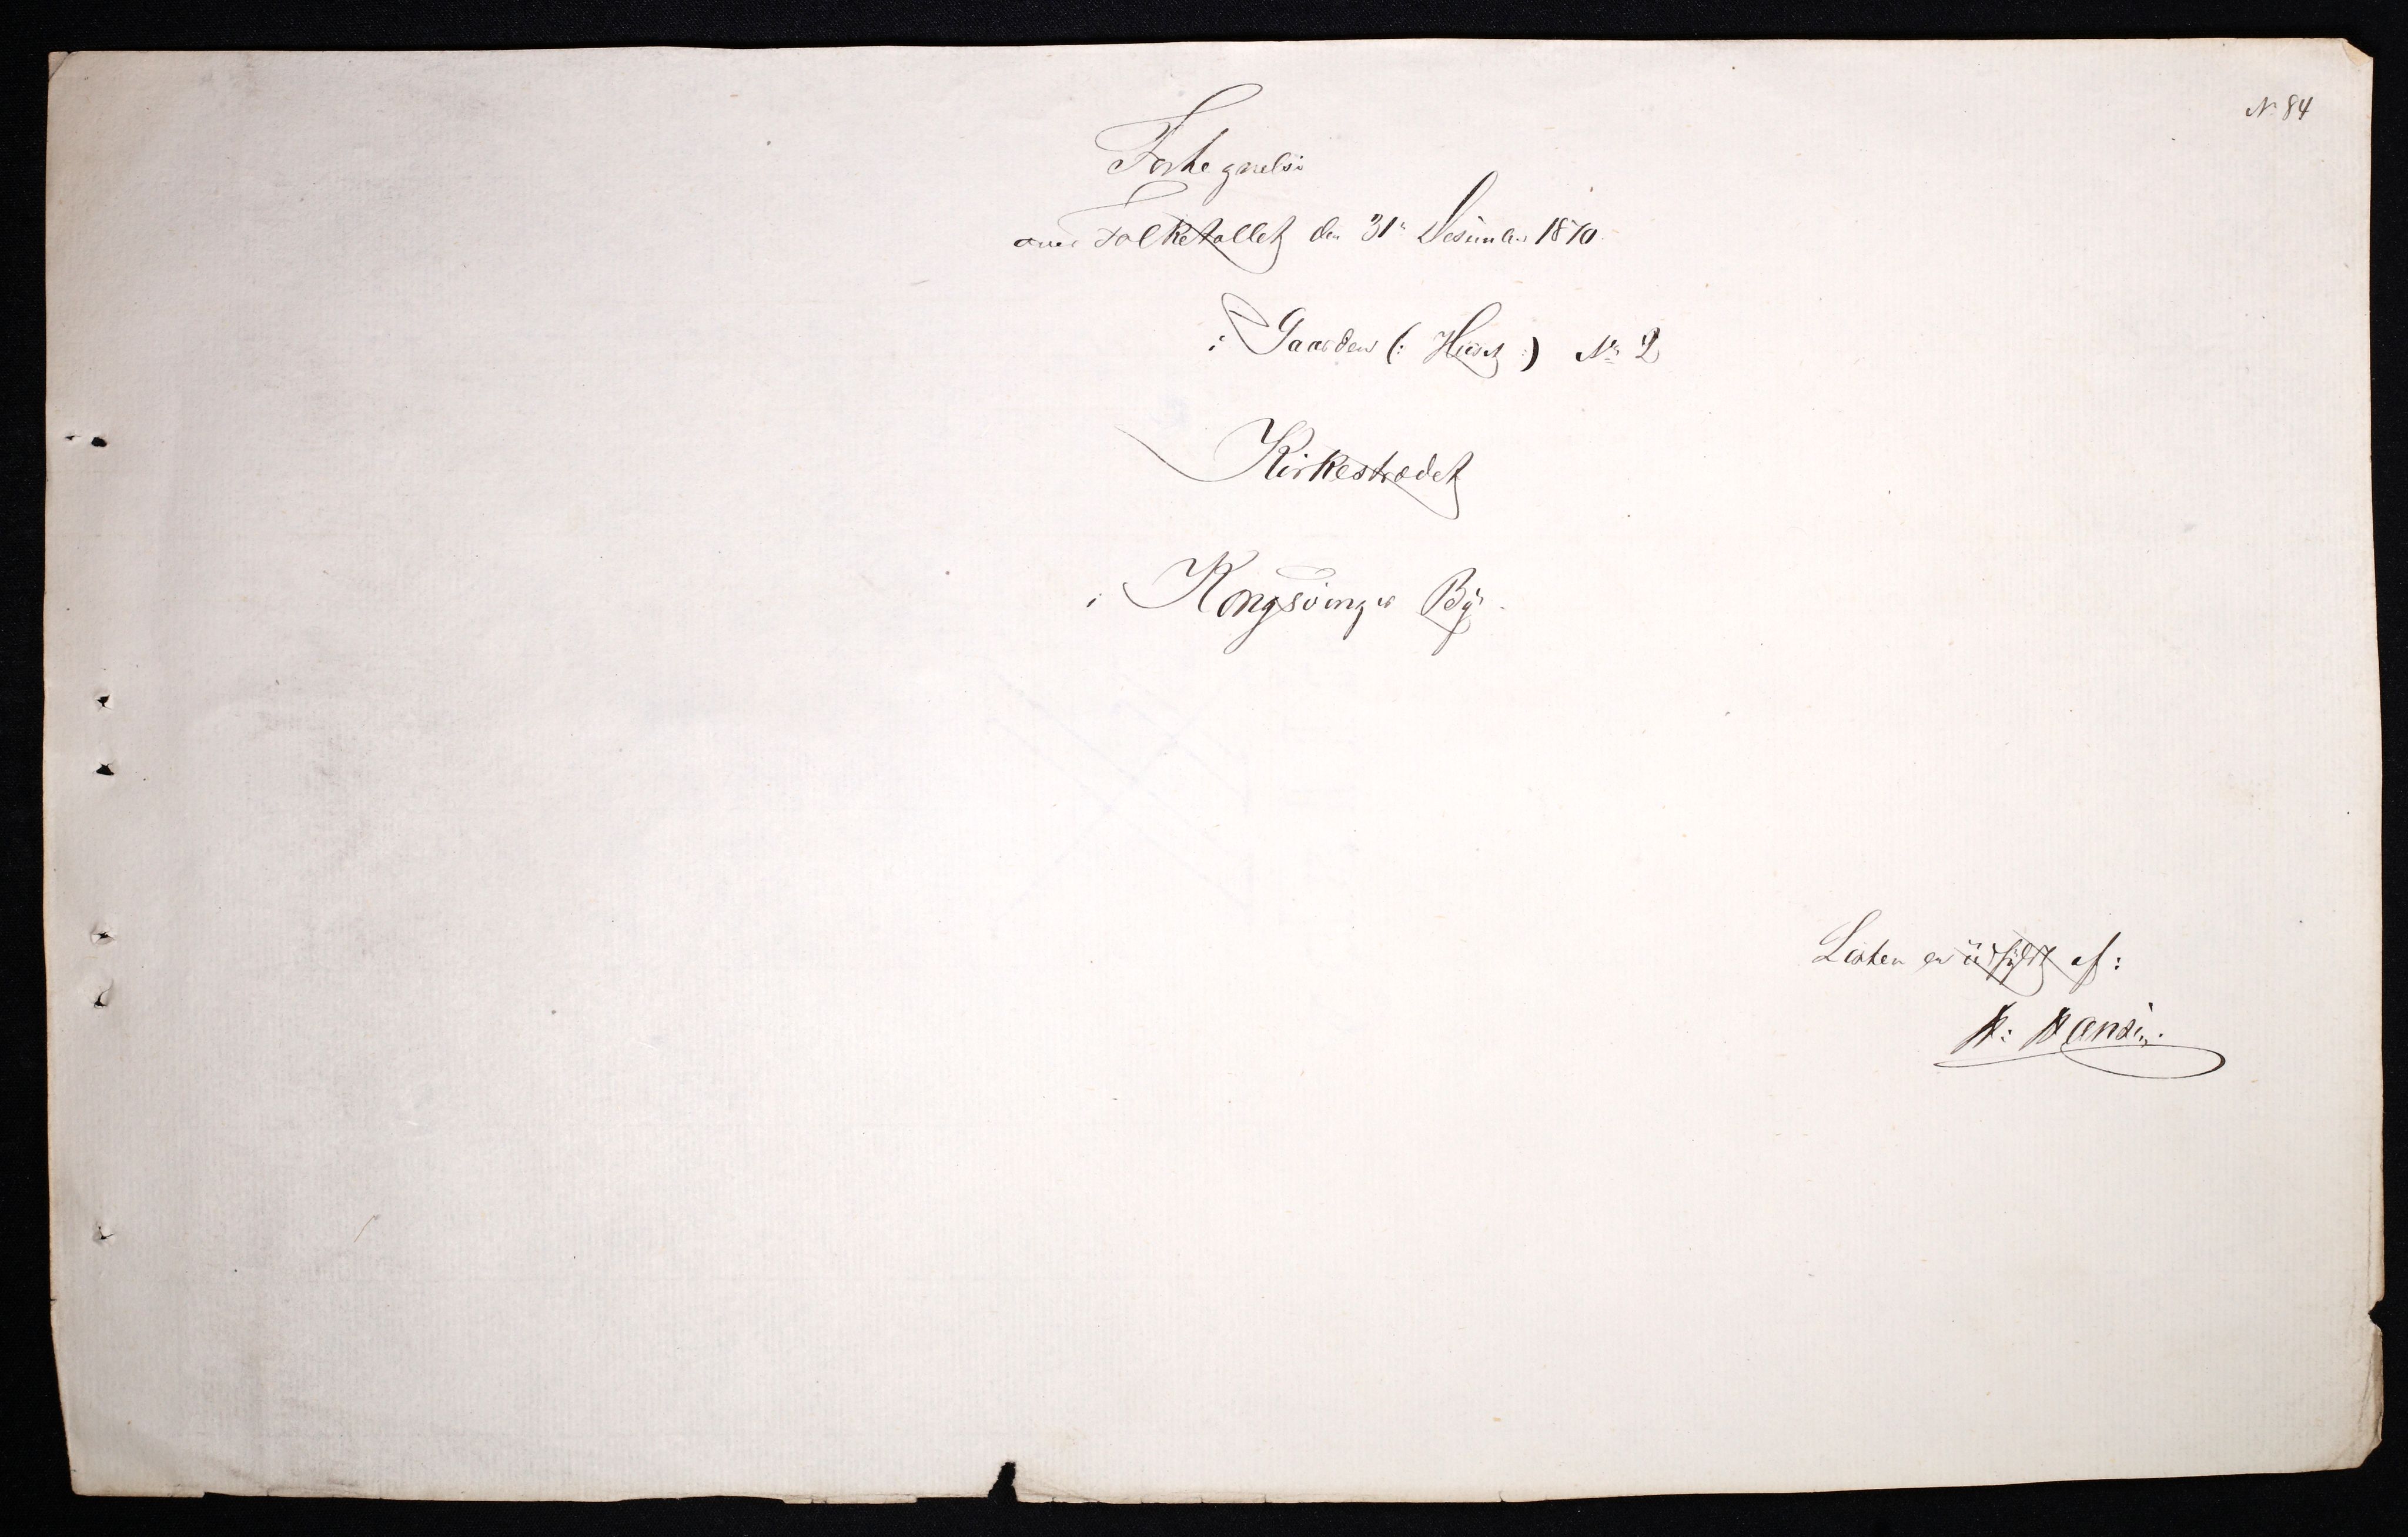 No 84
Fortegnelse
over Folketallet den 31te Desember 1870.
i Gaarden (: Huset :) No 2
Kirkestrædet
i Kongsvinger By.
Listen er udfyldt af:
H: Hansen.